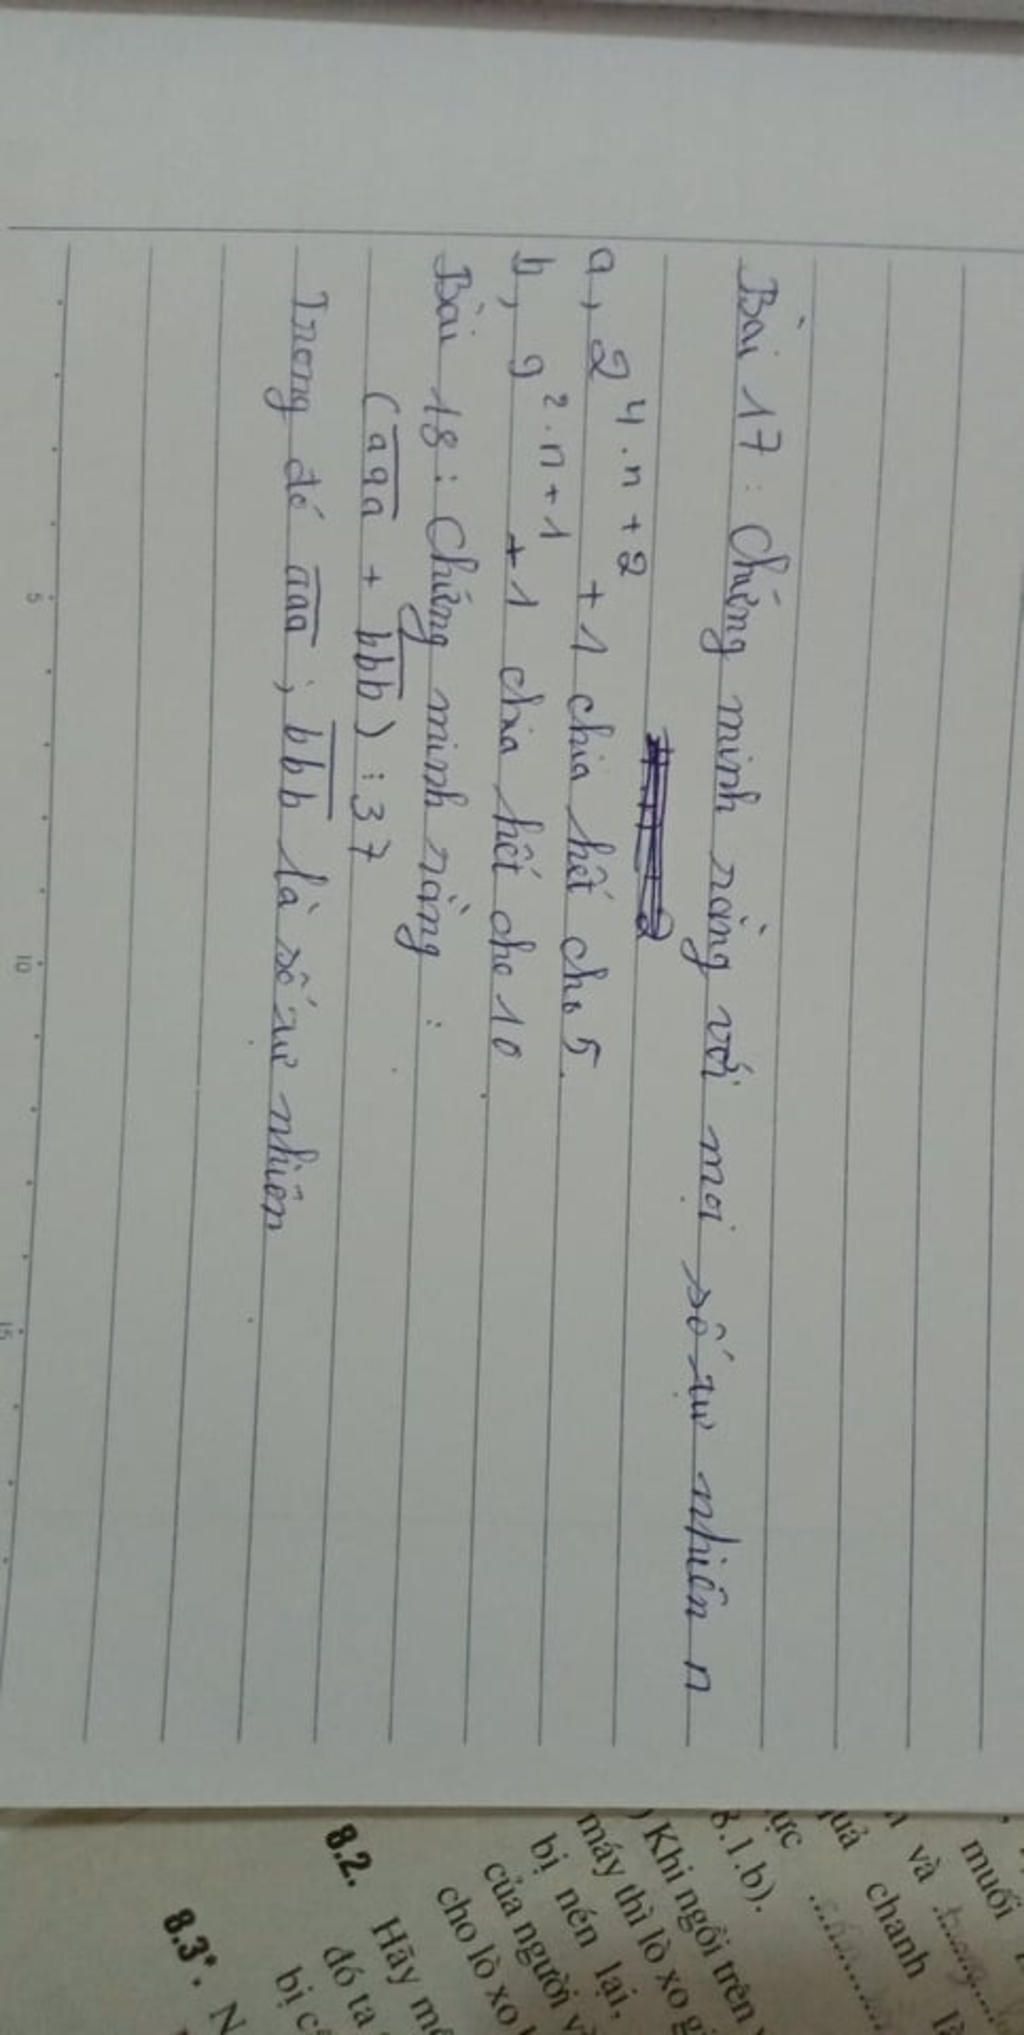 Bài 17 : Chứng minh rằng với mọi số tự nhiên n
a, 2^{4.n+2} + 1 chia hết cho 5.
b, 9^{2.n+1} + 1 chia hết cho 10
Bài 18 : Chứng minh rằng :
(\overline{aaa} + \overline{bbb}) ⋮ 37
Trong đó \overline{aaa} ; \overline{bbb} là số tự nhiên
5
10
15
muối
và
quả chanh
ực
8.1.b).
) Khi ngồi trên
máy thì lò xo
bị nén lại,
của người
cho lò xo
8.2. Hãy
đó ta
bị
8.3*. N